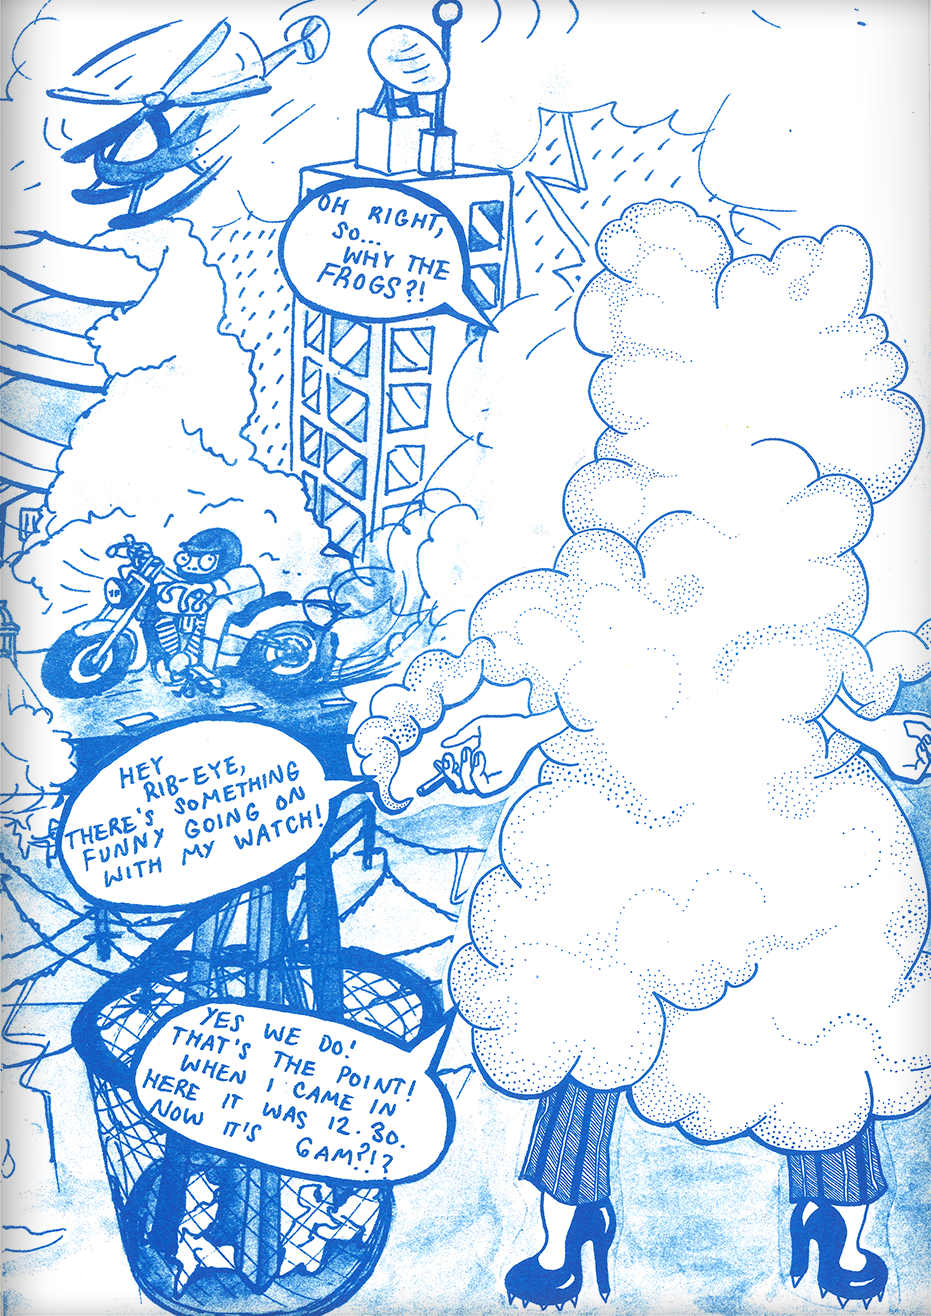 OH RIGHT,
SO...
WHY THE
FROGS?!
HEY
RIB-EYE,
THERE'S SOMETHING
FUNNY GOING ON
WITH MY WATCH!
YES WE DO!
THAT'S THE POINT!
WHEN I CAME IN
HERE IT WAS 12.30.
NOW IT'S 6AM?!?